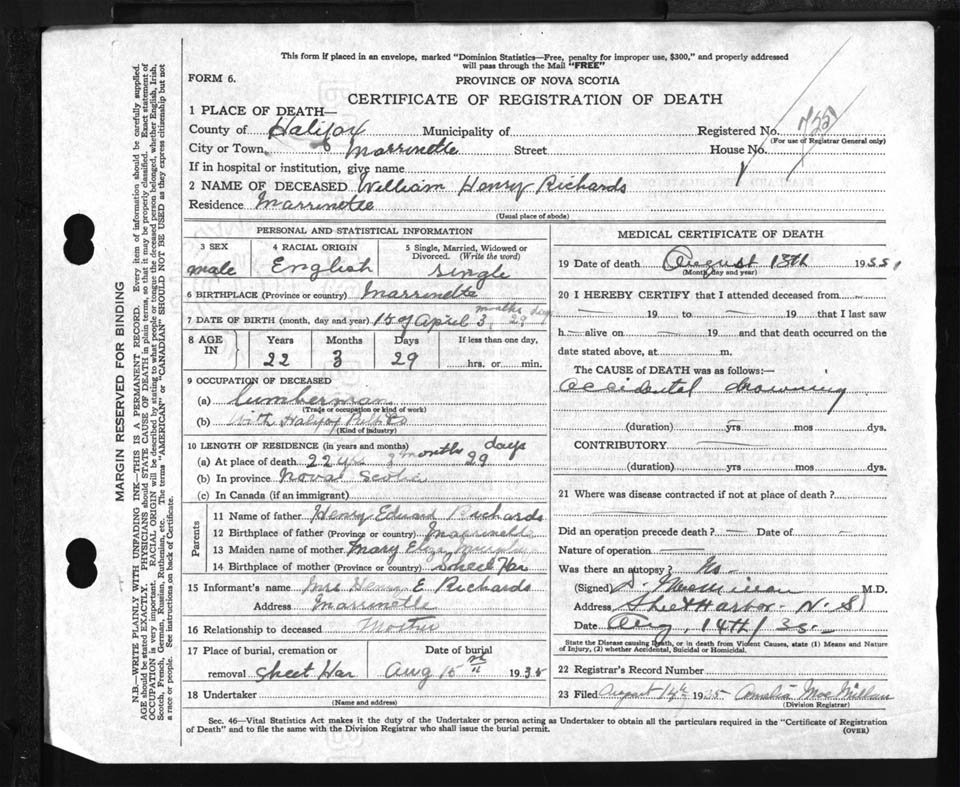 This form if placed in an envelope, marked "Dominion Statistics—Free, penalty for improper use, $300," and properly addressed
will pass through the Mail "FREE"
FORM 6.
PROVINCE OF NOVA SCOTIA
CERTIFICATE OF REGISTRATION OF DEATH
1 PLACE OF DEATH—
County of Halifax Municipality of Registered No.
(For use of Registrar General only)
City or Town Marrinette Street House No.
If in hospital or institution, give name
2 NAME OF DECEASED William Henry Richards
Residence Marrinette
(Usual place of abode)
PERSONAL AND STATISTICAL INFORMATION
3 SEX 4 RACIAL ORIGIN 5 Single, Married, Widowed or
Divorced. (Write the word)
male English single
6 BIRTHPLACE (Province or country) Marrinette
7 DATE OF BIRTH (month, day and year) 15 of April 3 months 29 days
8 AGE IN Years Months Days If less than one day,
22 3 29 hrs. or min.
9 OCCUPATION OF DECEASED
(a) Lumberman
(Trade or occupation or kind of work)
(b) With Halifax Pulp Co
(Kind of industry)
10 LENGTH OF RESIDENCE (in years and months) days
(a) At place of death 22 yrs 3 months 29
(b) In province Nova Scotia
(c) In Canada (if an immigrant)
Parents
11 Name of father Henry Edward Richards
12 Birthplace of father (Province or country) Marrinette
13 Maiden name of mother Mary
14 Birthplace of mother (Province or country) Sheet Har
15 Informant's name Mrs Henry E Richards
Address Marrinette
16 Relationship to deceased Mother
17 Place of burial, cremation or Date of burial
removal Sheet Har Aug 15th 1935
18 Undertaker
(Name and address)
MEDICAL CERTIFICATE OF DEATH
19 Date of death August 13th 1935
(Month, day and year)
20 I HEREBY CERTIFY that I attended deceased from
19 to 19 that I last saw
h alive on 19 and that death occurred on the
date stated above, at m.
The CAUSE OF DEATH was as follows:—
accidental drowning
(duration) yrs mos dys.
CONTRIBUTORY
(duration) yrs mos dys.
21 Where was disease contracted if not at place of death?
Did an operation precede death? Date of
Nature of operation
Was there an autopsy? No
(Signed) M.D.
Address Sheet Harbor N.S
Date Aug, 14th/35
State the Disease causing Death, or in death from Violent Causes, state (1) Means and Nature
of Injury, (2) whether Accidental, Suicidal or Homicidal.
22 Registrar's Record Number
23 Filed August 14th 1935 Amelia MacMillan
(Division Registrar)
Sec. 46—Vital Statistics Act makes it the duty of the Undertaker or person acting as Undertaker to obtain all the particulars required in the "Certificate of Registration
of Death" and to file the same with the Division Registrar who shall issue the burial permit.
(OVER)
MARGIN RESERVED FOR BINDING
N.B.—WRITE PLAINLY WITH UNFADING INK—THIS IS A PERMANENT RECORD. Every item of information should be carefully supplied.
AGE should be stated EXACTLY. PHYSICIANS should STATE CAUSE OF DEATH in plain terms, so that it may be properly classified. Exact statement of
OCCUPATION is very important. RACIAL ORIGIN will be described by stating to what people or tongue the deceased person belonged, whether English, Irish,
Scotch, French, German, Russian, Ruthenian, etc. The terms "AMERICAN" or "CANADIAN" SHOULD NOT BE USED as they express citizenship but not
a race or people. See instructions on back of Certificate.